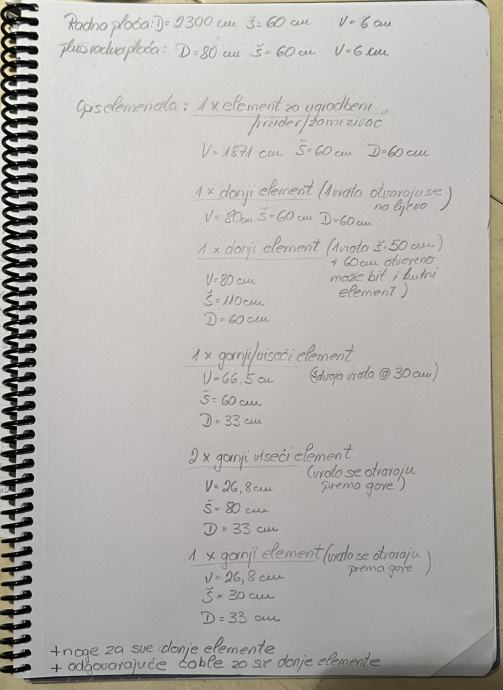 Radna ploča: D= 2300 cm Š= 60 cm V= 6 cm
plus radna ploča: D= 80 cm Š= 60 cm V= 6 cm
Opis elemenata: 1 x element za ugradbeni
frizider/zamrzivac
V= 1871 cm Š= 60 cm D=60 cm
1 x donji element (1 vrata otvaraju se
na lijevo)
V= 80cm Š= 60 cm D=60cm
1 x donji element (1 vrata š=50 cm)
+ 60cm otvoreno
može bit i kutni
element)
V=80 cm
Š= 110cm
D= 60 cm
1 x gornji/viseći element
V= 66,5 cm (dvoja vrata @ 30cm)
Š= 60 cm
D= 33 cm
2 x gornji viseći element
(vrata se otvaraju
prema gore)
V= 26,8cm
Š= 80 cm
D= 33 cm
1 x gornji element (vrata se otvaraju
prema gore)
V= 26,8 cm
Š= 30 cm
D= 33 cm
+noge za sve donje elemente
+ odgovarajuće cokle za sve donje elemente